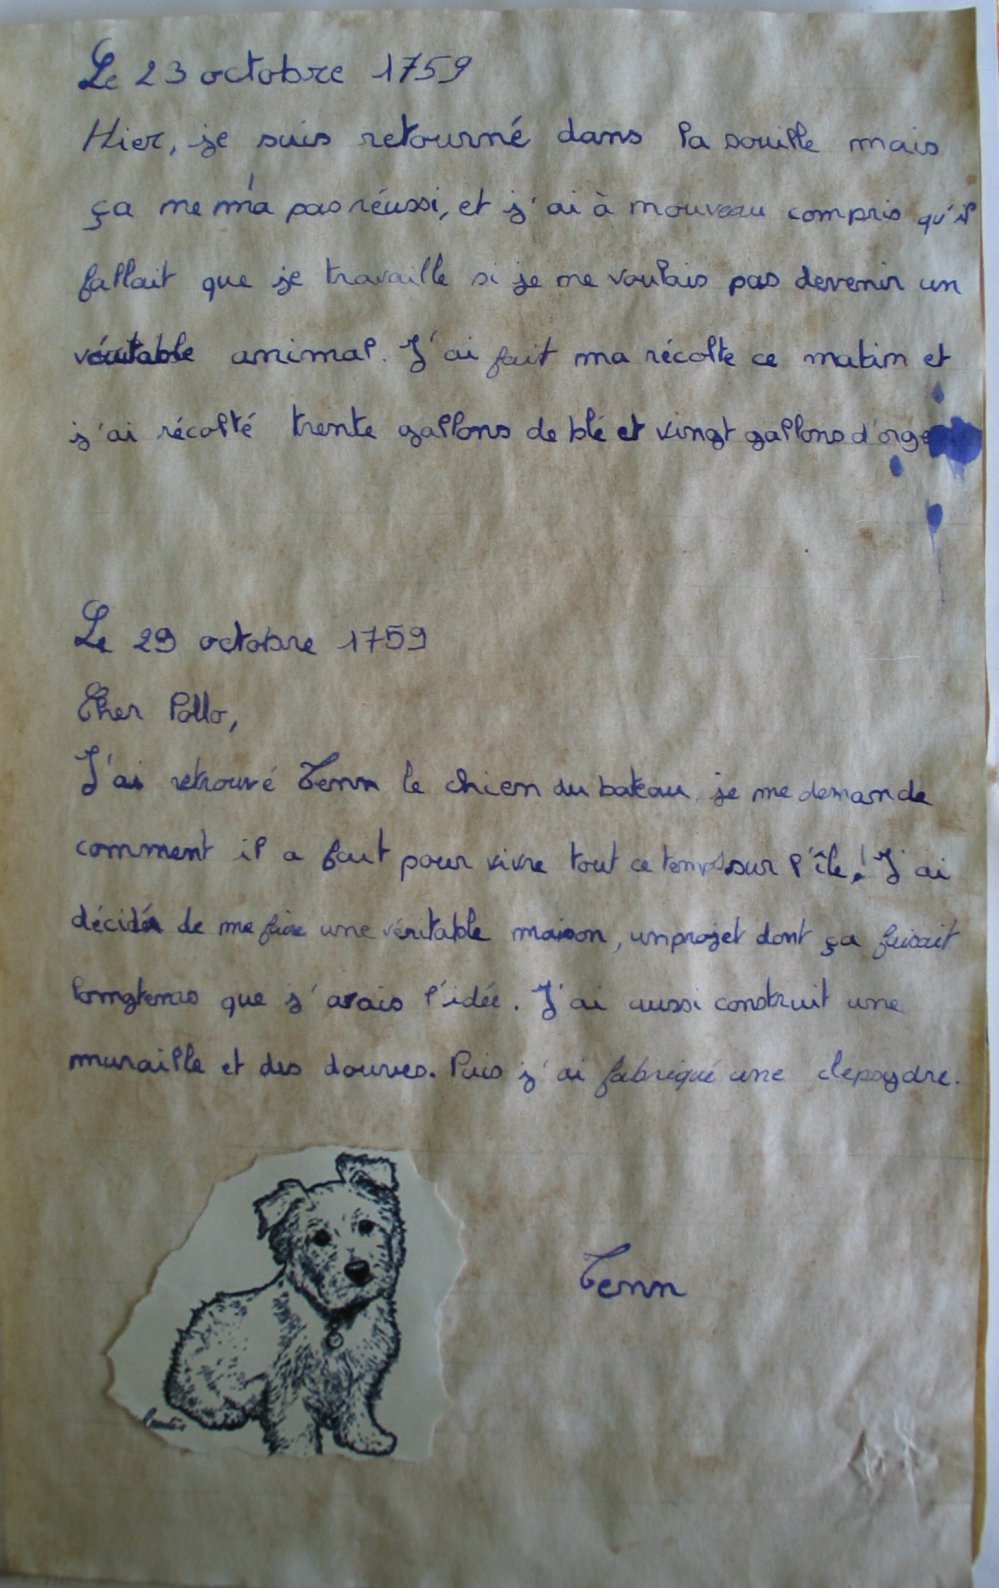 Le 23 octobre 1759
Hier, je suis retourné dans la souille mais
ça ne m'a pas réussi, et j'ai à nouveau compris qu'il
fallait que je travaille si je ne voulais pas devenir un
véritable animal. J'ai fait ma récolte ce matin et
j'ai récolté trente gallons de blé et vingt gallons d'orge
Le 29 octobre 1759
Cher Pollo,
J'ai retrouvé Tenn le chien du bateau, je me demande
comment il a fait pour vivre tout ce temps sur l'île! J'ai
décidé de me faire une véritable maison, un projet dont ça faisait
longtemps que j'avais l'idée. J'ai aussi construit une
muraille et des douves. Puis j'ai fabriqué une clepsydre.
Tenn